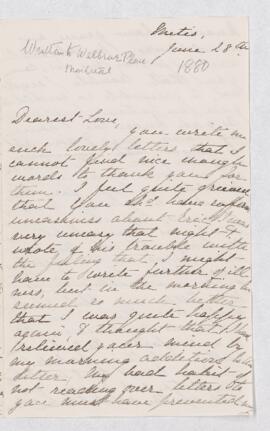 Metis,
June 28th
Written to Welbrae Place
Montreal
1880
Dearest Love,
you write me
such lovely letters that I
cannot find nice enough
words to thank you for
them. I feel quite grieved
that you shd. have
uneasiness about Eric. I was
very uneasy that night &
wrote of his trouble with
the feeling that I might
have to write further of ill
ness, but in the morning he
seemed so much better
that I was quite happy
again, & thought that I had
relieved your mind by
my morning addition to
letter. My bad habit of
not reading over letters to
you must have prevented